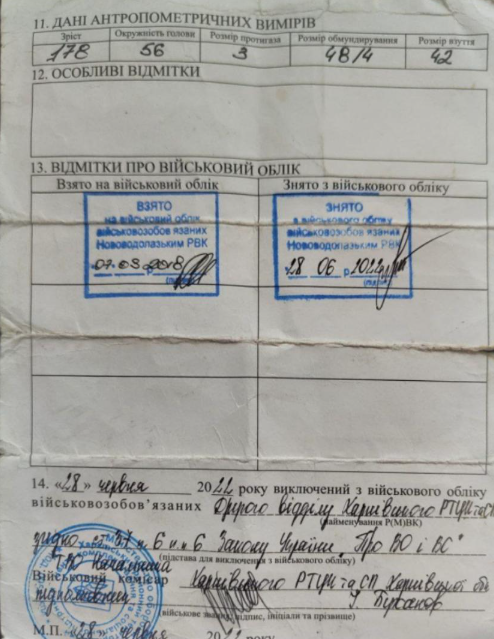 11. ДАНІ АНТРОПОМЕТРИЧНИХ ВИМІРІВ
Зріст Окружність голови Розмір протигаза Розмір обмундирування Розмір взуття
178 56 3 48/4 42
12. ОСОБЛИВІ ВІДМІТКИ
13. ВІДМІТКИ ПРО ВІЙСЬКОВИЙ ОБЛІК
Взято на військовий облік Знято з військового обліку
ВЗЯТО
на військовий облік
військовозобов'язаних
Нововодолазьким РВК
07.03.2018
(підпис)
ЗНЯТО
з військового обліку
військовозобов'язаних
Нововодолазьким РВК
28 06 р 2022
14. «28» червня 2022 року виключений з військового обліку
військовозобов'язаних Другого відділу Харківського РТЦК та СП
(найменування Р(М)ВК)
згідно ст 37 п 6 п.п 6 Закону України „Про ВО і ВС"
(підстава для виключення з військового обліку)
ТВО Начальника
Військовий комісар Харківського РТЦК та СП Харківської
підполковник
(військове звання, підпис, ініціали та прізвище)
М.П. «28» червня року